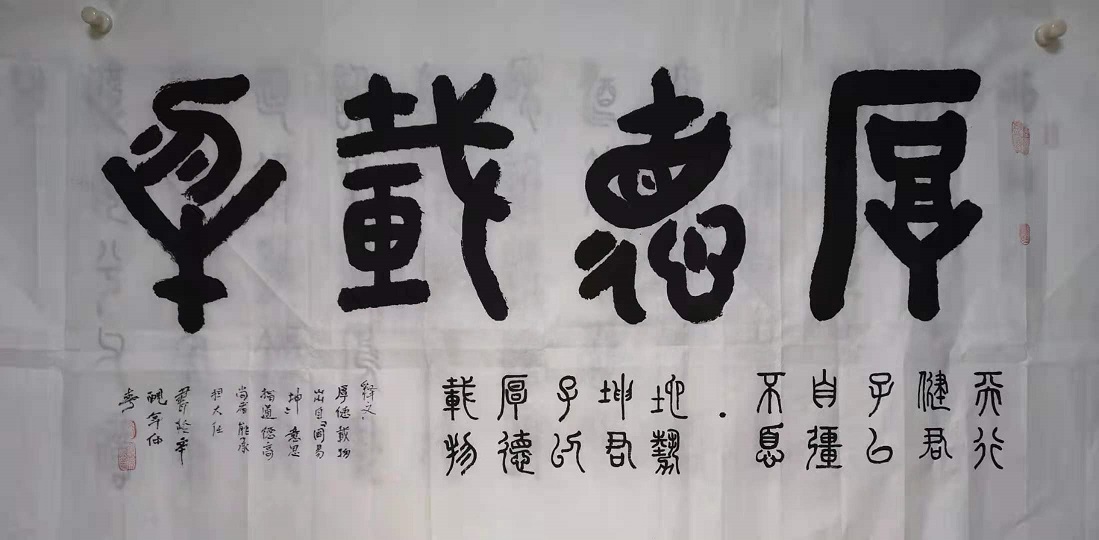 厚德載物
天行
健君
子以
自彊
不息
地勢
坤君
子以
厚德
載物
釋文
厚德載物
出自周易
坤 意思
指道德高
尚者能承
担大任
書於辛
醜年仲
春